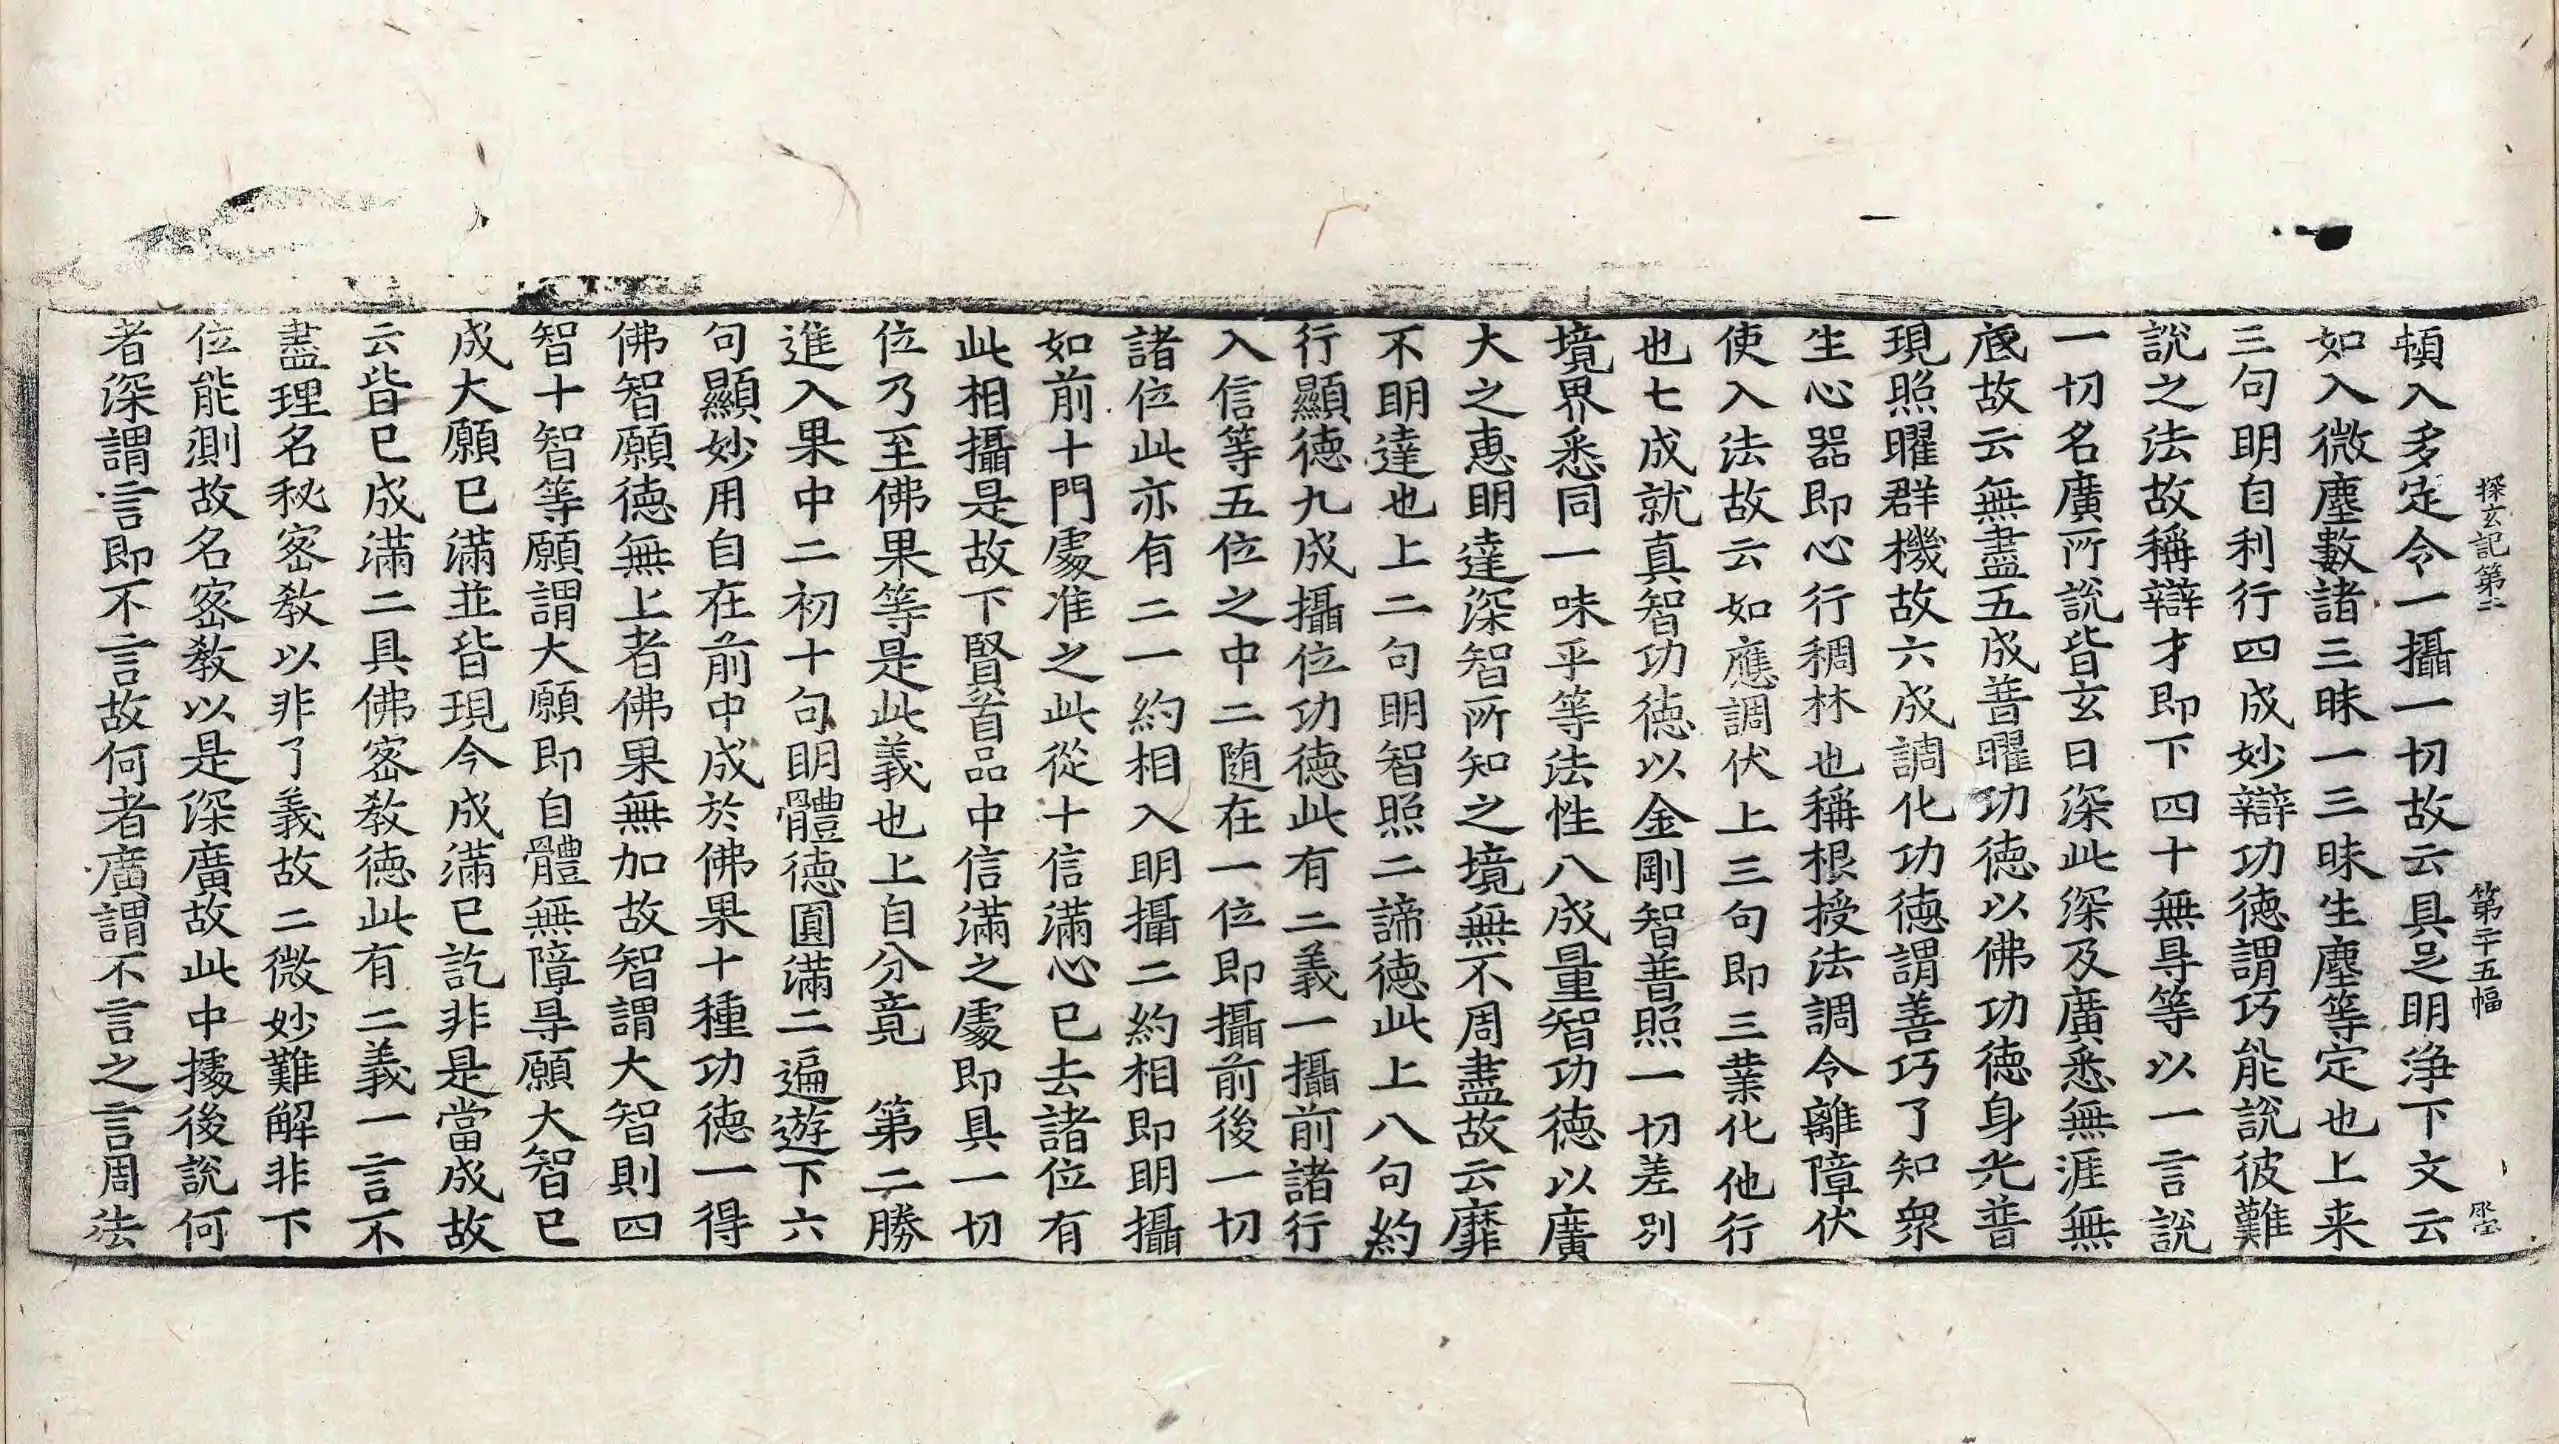 探玄記第二 第二十五幅
頓入多定令一攝一切故云具足明淨下文云
如入微塵數諸三昧一三昧生塵等定也上来
三句明自利行四成妙辯功德謂巧能說彼難
說之法故稱辯才即下四十無㝵等以一言說
一切名廣所說皆玄曰深此深及廣悉無涯無
底故云無盡五成普曜功德以佛功德身光普
現照曜群機故六成調化功德謂善巧了知衆
生心器即心行稠林也稱根授法調令離障伏
使入法故云如應調伏上三句即三業化他行
也七成就真智功德以金剛智普照一切差別
境界悉同一味乎等法性八成量智功德以廣
大之惠明達深智所知之境無不周盡故云靡
不明達也上二句明智照二諦德此上八句約
行顯德九成攝位功德此有二義一攝前諸行
入信等五位之中二随在一位即攝前後一切
諸位此亦有二一約相入明攝二約相即明攝
如前十門處准之此從十信滿心已去諸位有
此相攝是故下賢首品中信滿之處即具一切
位乃至佛果等是此義也上自分竟　第二勝
進入果中二初十句明體德圓滿二遍遊下六
句顯妙用自在前中成於佛果十種功德一得
佛智願德無上者佛果無加故智謂大智則四
智十智等願謂大願即自體無障㝵願大智已
成大願已滿並皆現今成滿已訖非是當成故
云皆已成滿二具佛密教德此有二義一言不
盡理名秘密教以非了義故二微妙難解非下
位能測故名密教以是深廣故此中據後說何
者深謂言即不言故何者廣謂不言之言周法